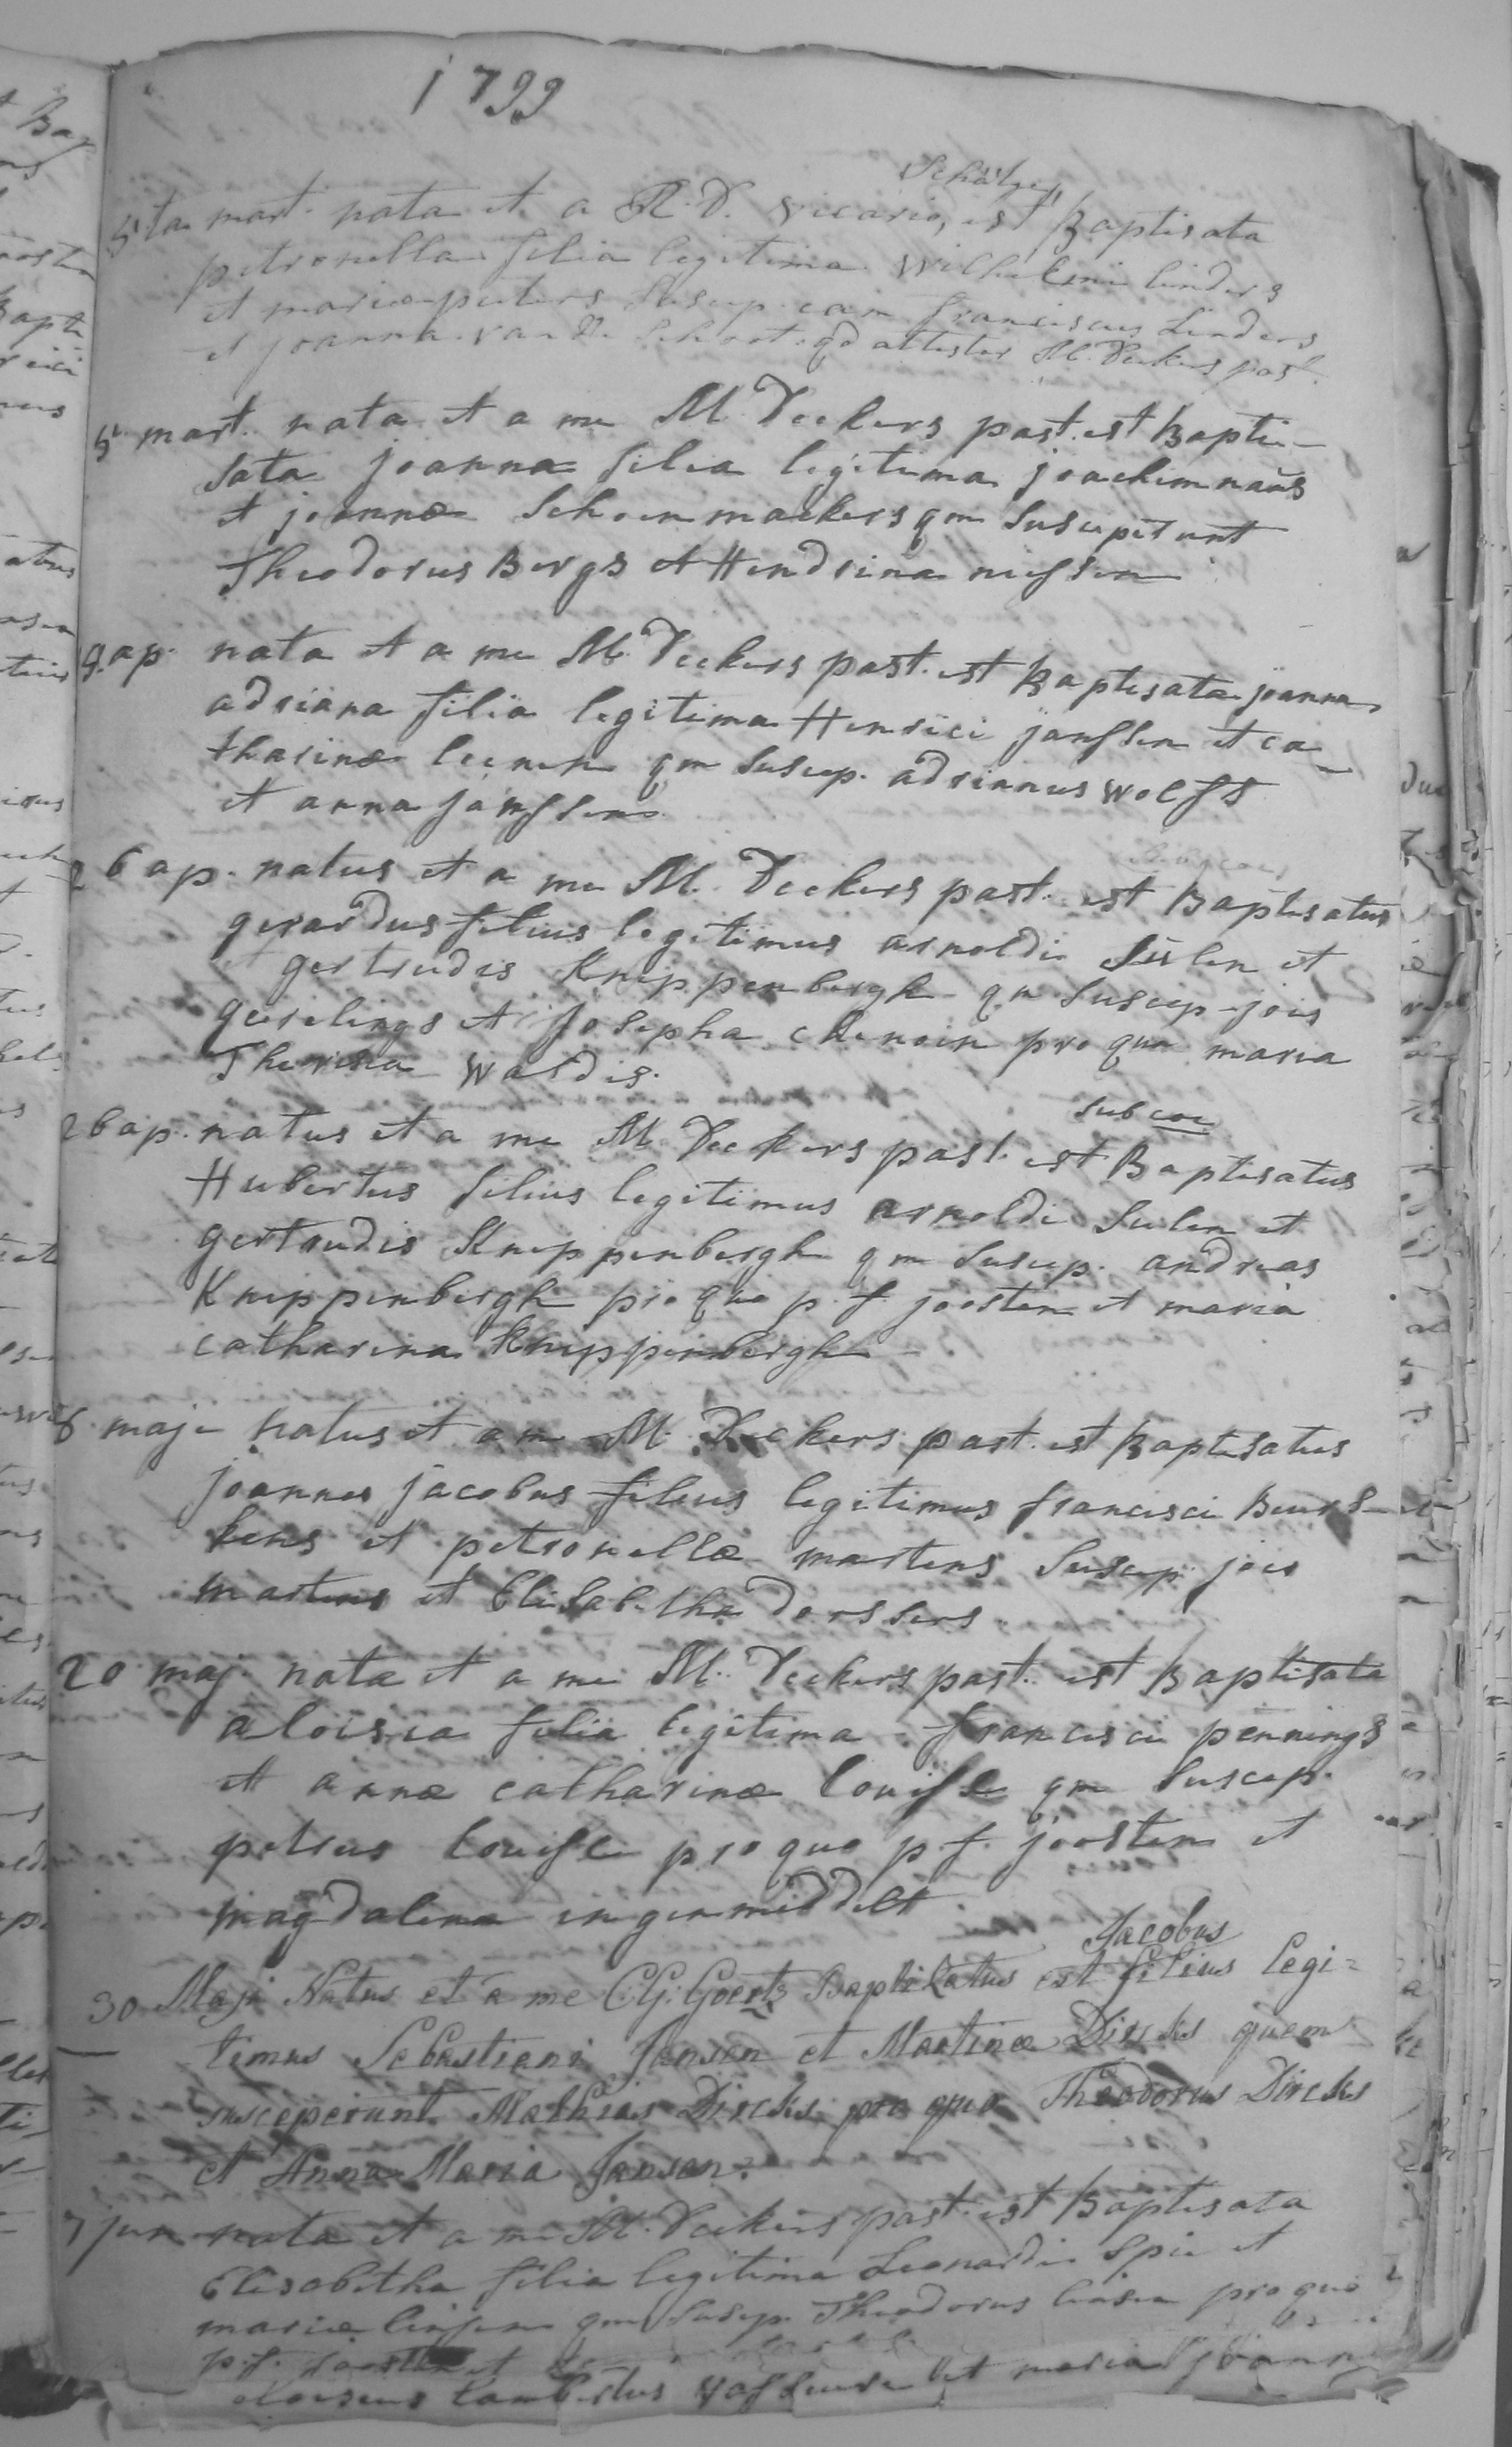 1799
Schölgen
5ta mart. nata et a R. D. vicario, est Baptisata
petronella filia legitima wilhelmi linders
et mariæ peeters suscep. eam franciscus Linders
et joanna van de schoot qd attestor M. Deckers past.
5 mart. nata et a me M. Deckers past. est Bapti-
sata joanna filia legitima joachim naus
et joannæ schoenmaekers qm susceperunt
Theodorus Bergs et Hendrina niessen
9 ap. nata et a me M. Deckers past. est Baptisata joanna
adriana filia legitima Henrici janssen et ca-
tharinæ leenen qm suscep. adrianus wolffs
et anna janssen
26 ap. natus et a me M. Deckers past. est Baptisatus
gerardus filius legitimus arnoldi Sülen et
gertrudis Knippenbergh qm suscep. jois
geerlings et josepha chenoin pro qua maria
Theresia wardis.
sub coe
26 ap. natus et a me M. Deckers past. est Baptisatus
Hubertus filius legitimus arnoldi Sulen et
gertrudis Knippenbergh qm suscep. andreas
Knippenbergh pro quo p. f. joosten et maria
catharina Knippenbergh
6 maji natus et a me M. Deckers past. est Baptisatus
joannes jacobus filius legitimus francisci Beurs-
kens et petronellæ martens suscep. jois
martens et Elisabetha derssers
20 maj. nata et a me M. Deckers past. est Baptisata
aloisia filia legitima francisci pennings
et annæ catharinæ louisse qm suscep.
petrus louisse pro quo p. f. joosten et
magdalena ingenmiddelt
Jacobus
30 Maji Natus et a me C. G. Goertz Baptizatus est filius legi=
timus Sebastiani Jansen et Martinæ Dircks quem
susceperunt Mathias Dircks pro quo Theodorus Dircks
et Anna Maria Jansen.
7 jun. nata et a me M. Deckers past. est Baptisata
Elisabetha filia legitima Leonardi Spie et
mariæ linssen qm suscep. Theodorus linsen pro quo
p. f. joosten et
Lambertus vasseur et maria joanna